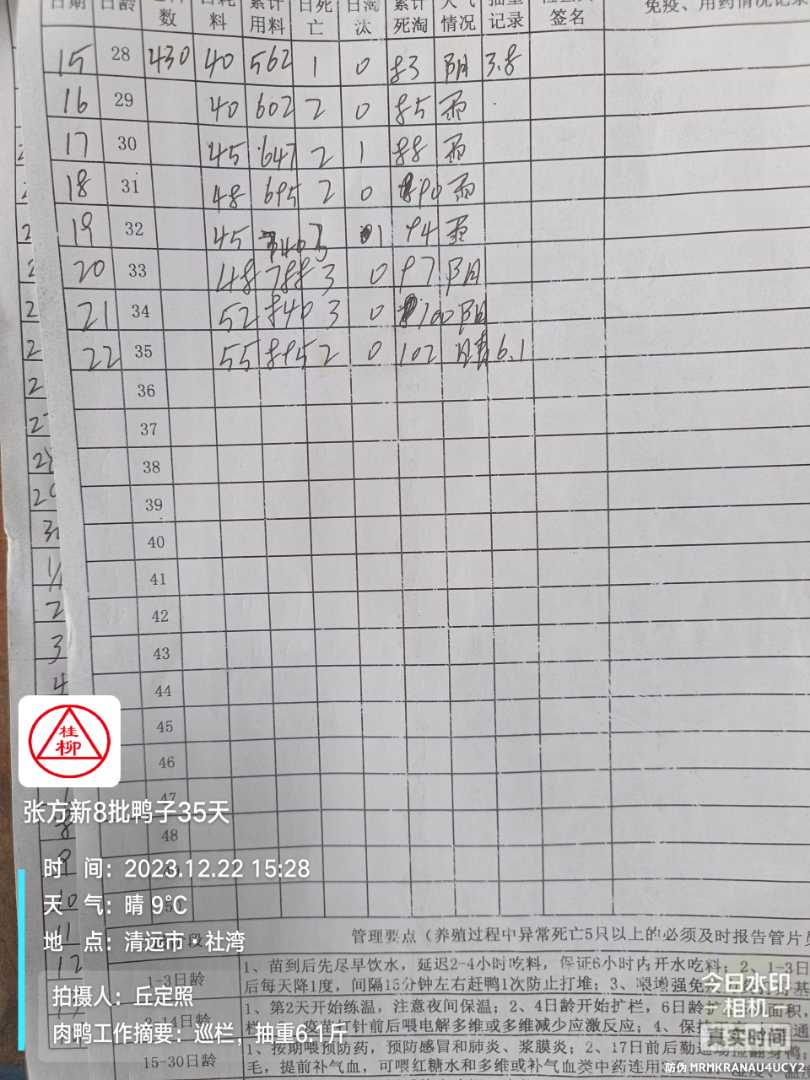 日期 日龄 数 日耗料 累计用料 日死亡 日淘汰 累计死淘 天气情况 抽重记录 签名 免疫、用药情况记录
15 28 430 40 562 1 0 83 阴 3.8
16 29 40 602 2 0 85 雨
17 30 45 647 2 1 88 雨
18 31 48 695 2 0 90 雨
19 32 45 740 3 1 94 雨
20 33 48 788 3 0 97 阴
21 34 52 840 3 0 100 阴
22 35 55 895 2 0 102 晴 6.1
36
37
38
39
40
41
42
43
44
45
46
47
48
桂柳
张方新8批鸭子35天
时 间：2023.12.22 15:28
天 气：晴 9℃
地 点：清远市·社湾
拍摄人：丘定照
肉鸭工作摘要：巡栏，抽重6.1斤
管理要点（养殖过程中异常死亡5只以上的必须及时报告管片员
1-3日龄
1、苗到后先尽早饮水，延迟2-4小时吃料，保证6小时内开水吃料；2、1-3日
后每天降1度，间隔15分钟左右赶鸭1次防止打堆；3、
1、第2天开始练温，注意夜间保温；2、4日龄开始扩栏，6日龄
15-30日龄
1、按期喂预防药，预防感冒和肺炎、浆膜炎；2、17日前后勤
毛，提前补气血，可喂红糖水和多维或补气血类中药连用
今日水印
相机
真实时间
防伪 MRMKRANAU4UCY2